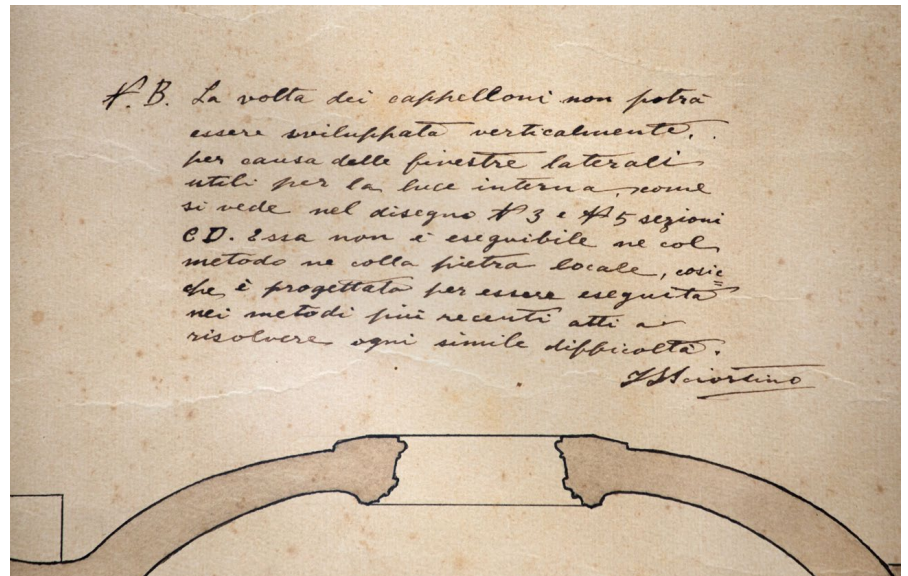 N. B. La volta dei cappelloni non potrà
essere sviluppata verticalmente,
per causa delle finestre laterali
utili per la luce interna, come
si vede nel disegno N 3 e N 5 sezioni
C D. Essa non è eseguibile ne col
metodo ne colla pietra locale, cosic=
che è progettata per essere eseguita
nei metodi più recenti atti a
risolvere ogni simile difficoltà.
Sciortino